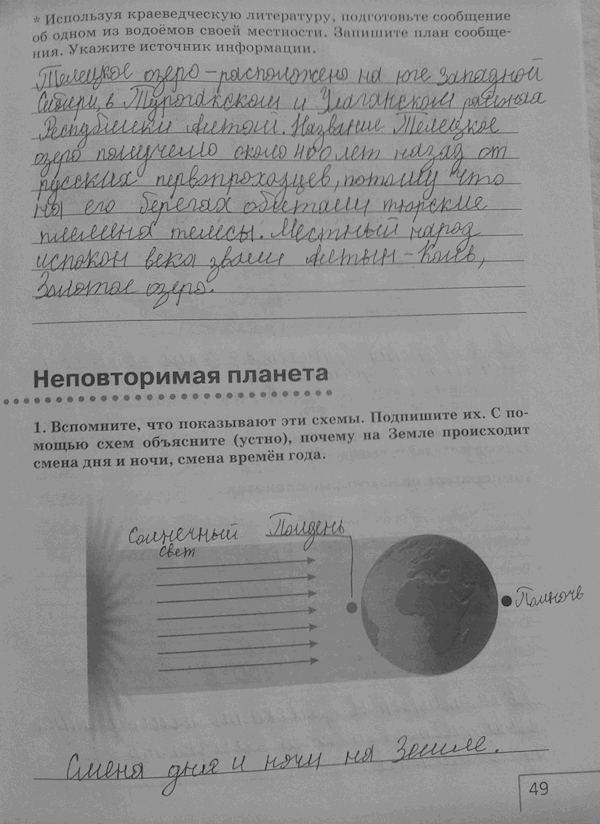 * Используя краеведческую литературу, подготовьте сообщение
об одном из водоёмов своей местности. Запишите план сообще-
ния. Укажите источник информации.
Телецкое озеро – расположено на юге Западной
Сибири, в Турочакском и Улаганском районах
Республики Алтай. Название Телецкое
озеро получило около 400 лет назад от
русских первопроходцев, потому что
на его берегах обитали тюрские
племена телесы. Местный народ
испокон века звали Алтын-Кель,
Золотое озеро.
Неповторимая планета
1. Вспомните, что показывают эти схемы. Подпишите их. С по-
мощью схем объясните (устно), почему на Земле происходит
смена дня и ночи, смена времён года.
Солнечный Полдень
свет
Полночь
Смена дня и ночи на Земле.
49